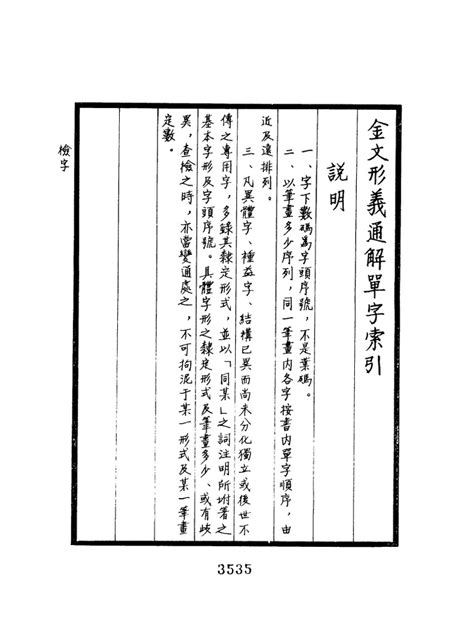 金文形義通解單字索引
說明
一、字下數碼為字頭序號，不是葉碼。
二、以筆畫多少序列，同一筆畫內各字按書內單字順序，由
近及遠排列。
三、凡異體字、種益字、結構已異而尚未分化獨立或後世不
傳之專用字，多錄其隸定形式，並以「同某」之詞注明所坿著之
基本字形及字頭序號。具體字形之隸定形式及筆畫多少、或有歧
異，查檢之時，亦當變通處之，不可拘泥于某一形式及某一筆畫
定數。
檢字
3535